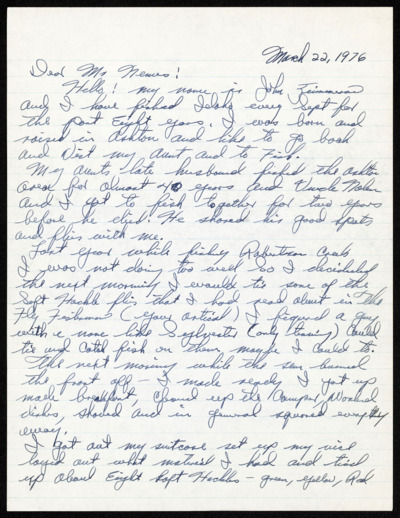 March 22, 1976
Dear Mr Nemes!
Hello! my name is John Zimmerman
and I have fished Idaho every Sept for
the past Eight years. I was born and
raised in Ashton and like to go back
and Visit my Aunt and to Fish.
My Aunts late husband fished the Ashton
area for almost 40 years and Uncle
and I got to fish together for two years
before he died. He shared his good spots
and flies with me.
Last year while fishing Robertson Creek
I was not doing too well so I decided
the next morning I would tie some of the
Soft Hackle flies that I had read about in The
Fly Fisherman (your artical) I figured a guy
with a name like Sylvester (only teasing) could
tie and catch fish on them maybe I could to.
The next morning while the sun burned
the frost off - I made ready I got up
made breakfast, cleaned up the Camper, Washed
dishes, shaved and in general squared everything
away.
I got out my suitcase set up my vise
layed out what material I had and tied
up about Eight Soft Hackles - green, yellow, Red